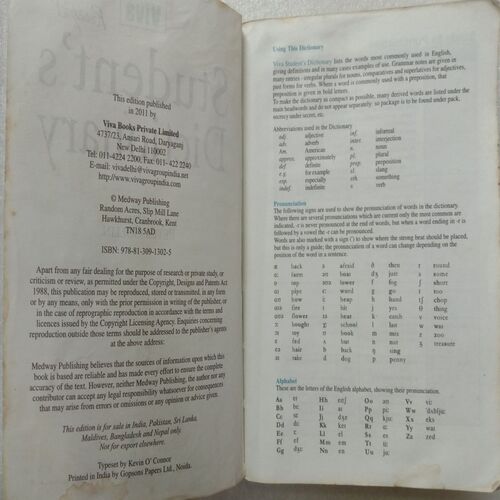 This edition published
in 2011 by
Viva Books Private Limited
4737/23, Ansari Road, Daryaganj
New Delhi 110002
Tel: 011-4224 2200, Fax: 011- 422 2240
E-mail: vivadelhi@vivagroupindia.net
www.vivagroupindia.com
© Medway Publishing
Random Acres, Slip Mill Lane
Hawkhurst, Cranbrook, Kent
TN18 5AD
ISBN: 978-81-309-1302-5
Apart from any fair dealing for the purpose of research or private study, or
criticism or review, as permitted under the Copyright, Designs and Patents Act
1988, this publication may be reproduced, stored or transmitted, in any form
or by any means, only with the prior permission in writing of the publisher, or
in the case of reprographic reproduction in accordance with the terms and
licences issued by the Copyright Licensing Agency. Enquiries concerning
reproduction outside those terms should be addressed to the publisher's agents
at the above address:
Medway Publishing believes that the sources of information upon which this
book is based are reliable and has made every effort to ensure the complete
accuracy of the text. However, neither Medway Publishing, the author nor any
contributor can accept any legal responsibility whatsoever for consequences
that may arise from errors or omissions or any opinion or advice given.
This edition is for sale in India, Pakistan, Sri Lanka,
Maldives, Bangladesh and Nepal only.
Not for export elsewhere.
Typeset by Kevin O' Connor
Printed in India by Gopsons Papers Ltd., Noida.
Using This Dictionary
Viva Student's Dictionary lists the words most commonly used in English,
giving definitions and in many cases examples of use. Grammar notes are given in
many entries - irregular plurals for nouns, comparatives and superlatives for adjectives,
past forms for verbs. Where a word is commonly used with a preposition, that
preposition is given in bold letters.
To make the dictionary as compact as possible, many derived words are listed under the
main headwords and do not appear separately: so package is to be found under pack,
secrecy under secret, etc.
Abbreviations used in the Dictionary
adj. adjective inf. informal
adv. adverb inter. interjection
Am. American n. noun
approx. approximately pl. plural
def. definite prep. preposition
e.g. for example sl. slang
esp. especially sth. something
indef. indefinite v. verb
Pronunciation
The following signs are used to show the pronunciation of words in the dictionary.
Where there are several pronunciations which are current only the most common are
indicated, -r is never pronounced at the end of words, but when a word ending in -r is
followed by a vowel the -r can be pronounced.
Words are also marked with a sign (') to show where the strong beat should be placed,
but this is only a guide; the pronunciation of a word can change depending on the
position of the word in a sentence.
æ back ə afraid ð then r round
ɑ: farm əʊ boat dʒ just s some
ɒ top lower f fog ʃ short
aɪ pipe word g go t too
aʊ how i: heap h hand tʃ chop
fire ɪ hit j yes θ thing
flower ɪə hear k catch v voice
ɔ: bought school l last w was
ɔɪ toy ʊ book m mix z zoo
e fed ʌ but n not ʒ treasure
eə hair b buck ŋ sing
eɪ take d dog p penny
Alphabet
These are the letters of the English alphabet, showing their pronunciation.
Aa eɪ Hh eɪtʃ Oo əʊ Vv vi:
Bb bi: Ii aɪ Pp pi: Ww 'dʌblju:
Cc si: Jj dʒeɪ Qq kju: Xx eks
Dd di: Kk keɪ Rr ɑ: Yy waɪ
Ee i: Ll el Ss es Zz zed
Ff ef Mm em Tt ti:
Gg dʒi: Nn en Uu ju: